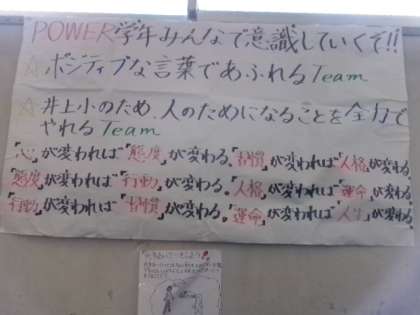 POWER学年みんなで意識していくぞ!!
☆ポジティブな言葉であふれるTeam
☆井上小のため、人のためになることを全力で
やれるTeam
「心」が変われば「態度」が変わる。「習慣」が変われば「人格」が変わる。
「態度」が変われば「行動」が変わる。「人格」が変われば「運命」が変わる。
「行動」が変われば「習慣」が変わる。「運命」が変われば「人生」が変わる。